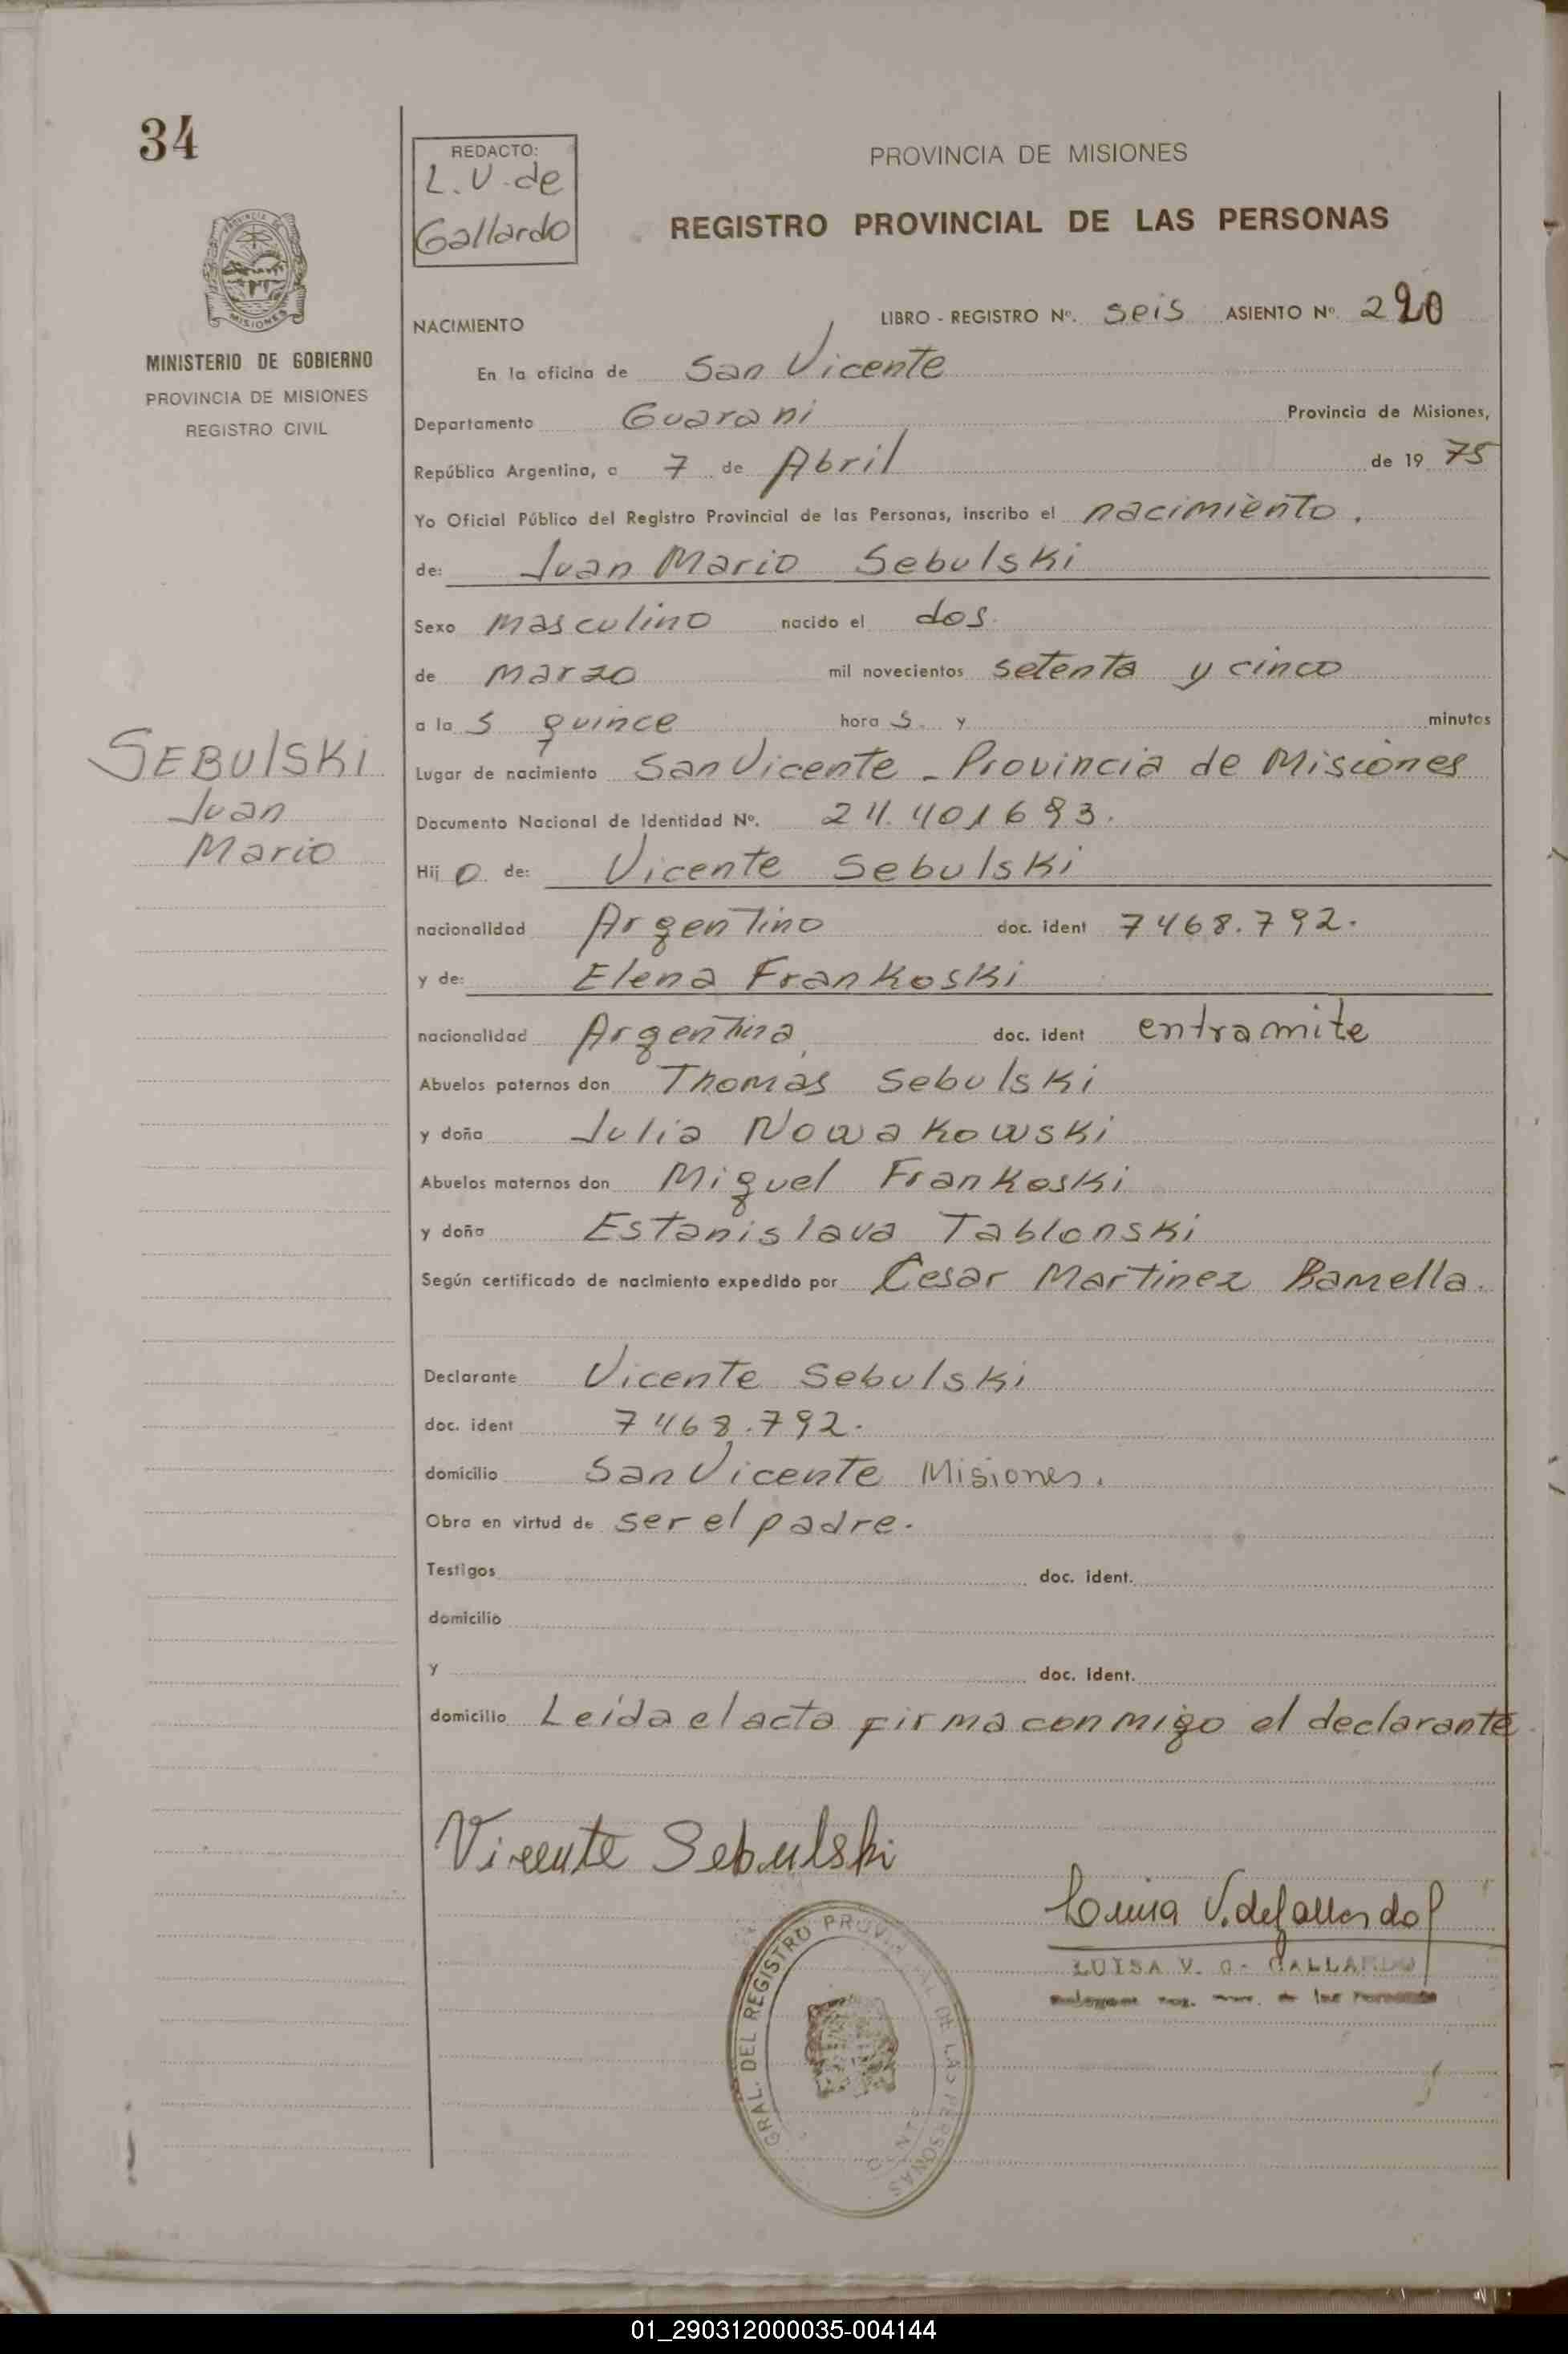 34
REDACTO:
L.V. de
Gallardo
PROVINCIA DE MISIONES
REGISTRO PROVINCIAL DE LAS PERSONAS
MISIONES
MINISTERIO DE GOBIERNO
PROVINCIA DE MISIONES
REGISTRO CIVIL
NACIMIENTO LIBRO - REGISTRO Nº. seis ASIENTO Nº 220
En la oficina de San Vicente
Departamento Guarani Provincia de Misiones,
República Argentina, a 7 de Abril de 19 75
Yo Oficial Público del Registro Provincial de las Personas, inscribo el nacimiento.
de: Juan Mario Sebulski
Sexo masculino nacido el dos.
de marzo mil novecientos setenta y cinco
a la s quince hora s. y minutos
SEBUlSKi
Juan
Mario
Lugar de nacimiento San Vicente - Provincia de Misiones
Documento Nacional de Identidad Nº. 24.401693.
Hij o de: Vicente Sebulski
nacionalidad Argentino doc. ident 7468.792.
y de: Elena Frankoski
nacionalidad Argentina, doc. ident entramite
Abuelos paternos don Thomas Sebulski
y doña Julia Nowakowski
Abuelos maternos don Miguel Frankoski
y doña Estanislava Tablonski
Según certificado de nacimiento expedido por Cesar Martinez Ramella.
Declarante Vicente Sebulski
doc. ident 7468.792.
domicilio San Vicente Misiones.
Obra en virtud de ser el padre.
Testigos doc. ident.
domicilio
y doc. ident.
domicilio Leída el acta firma conmigo el declarante.
Vicente Sebulski
Luisa V. de Gallardo
LUISA V. GALLARDO
de las Personas
GRAL. DEL REGISTRO PROV. DE LAS PERSONAS
01_290312000035-004144